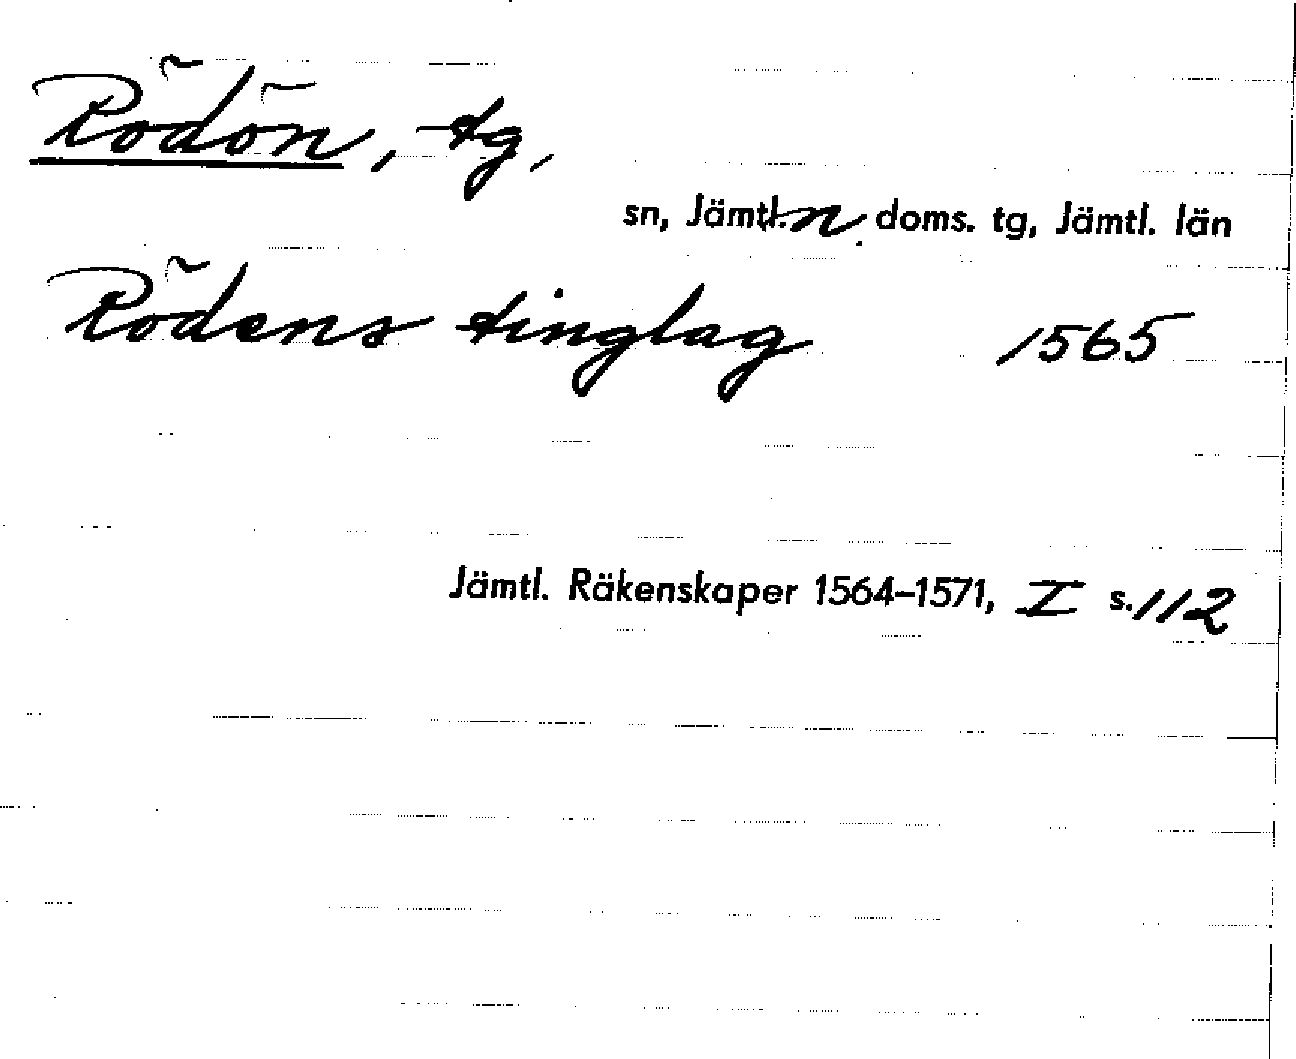 Rödön, tg,
sn, Jämtl. n. doms. tg, Jämtl. län
Rödens tinglag 1565
Jämtl. Räkenskaper 1564–1571, I s. 112